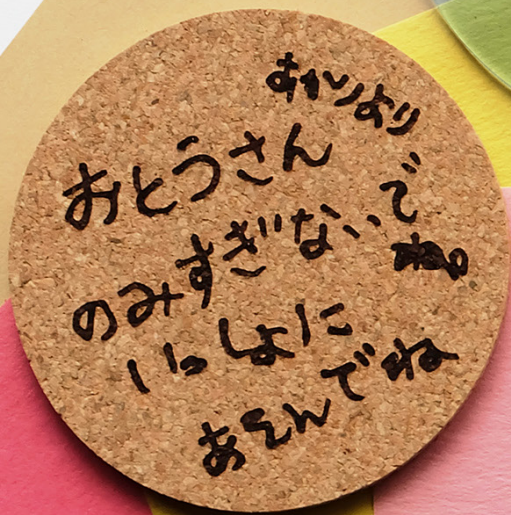 あかりより
おとうさん
のみすぎないで
いっしょに
あそんでね